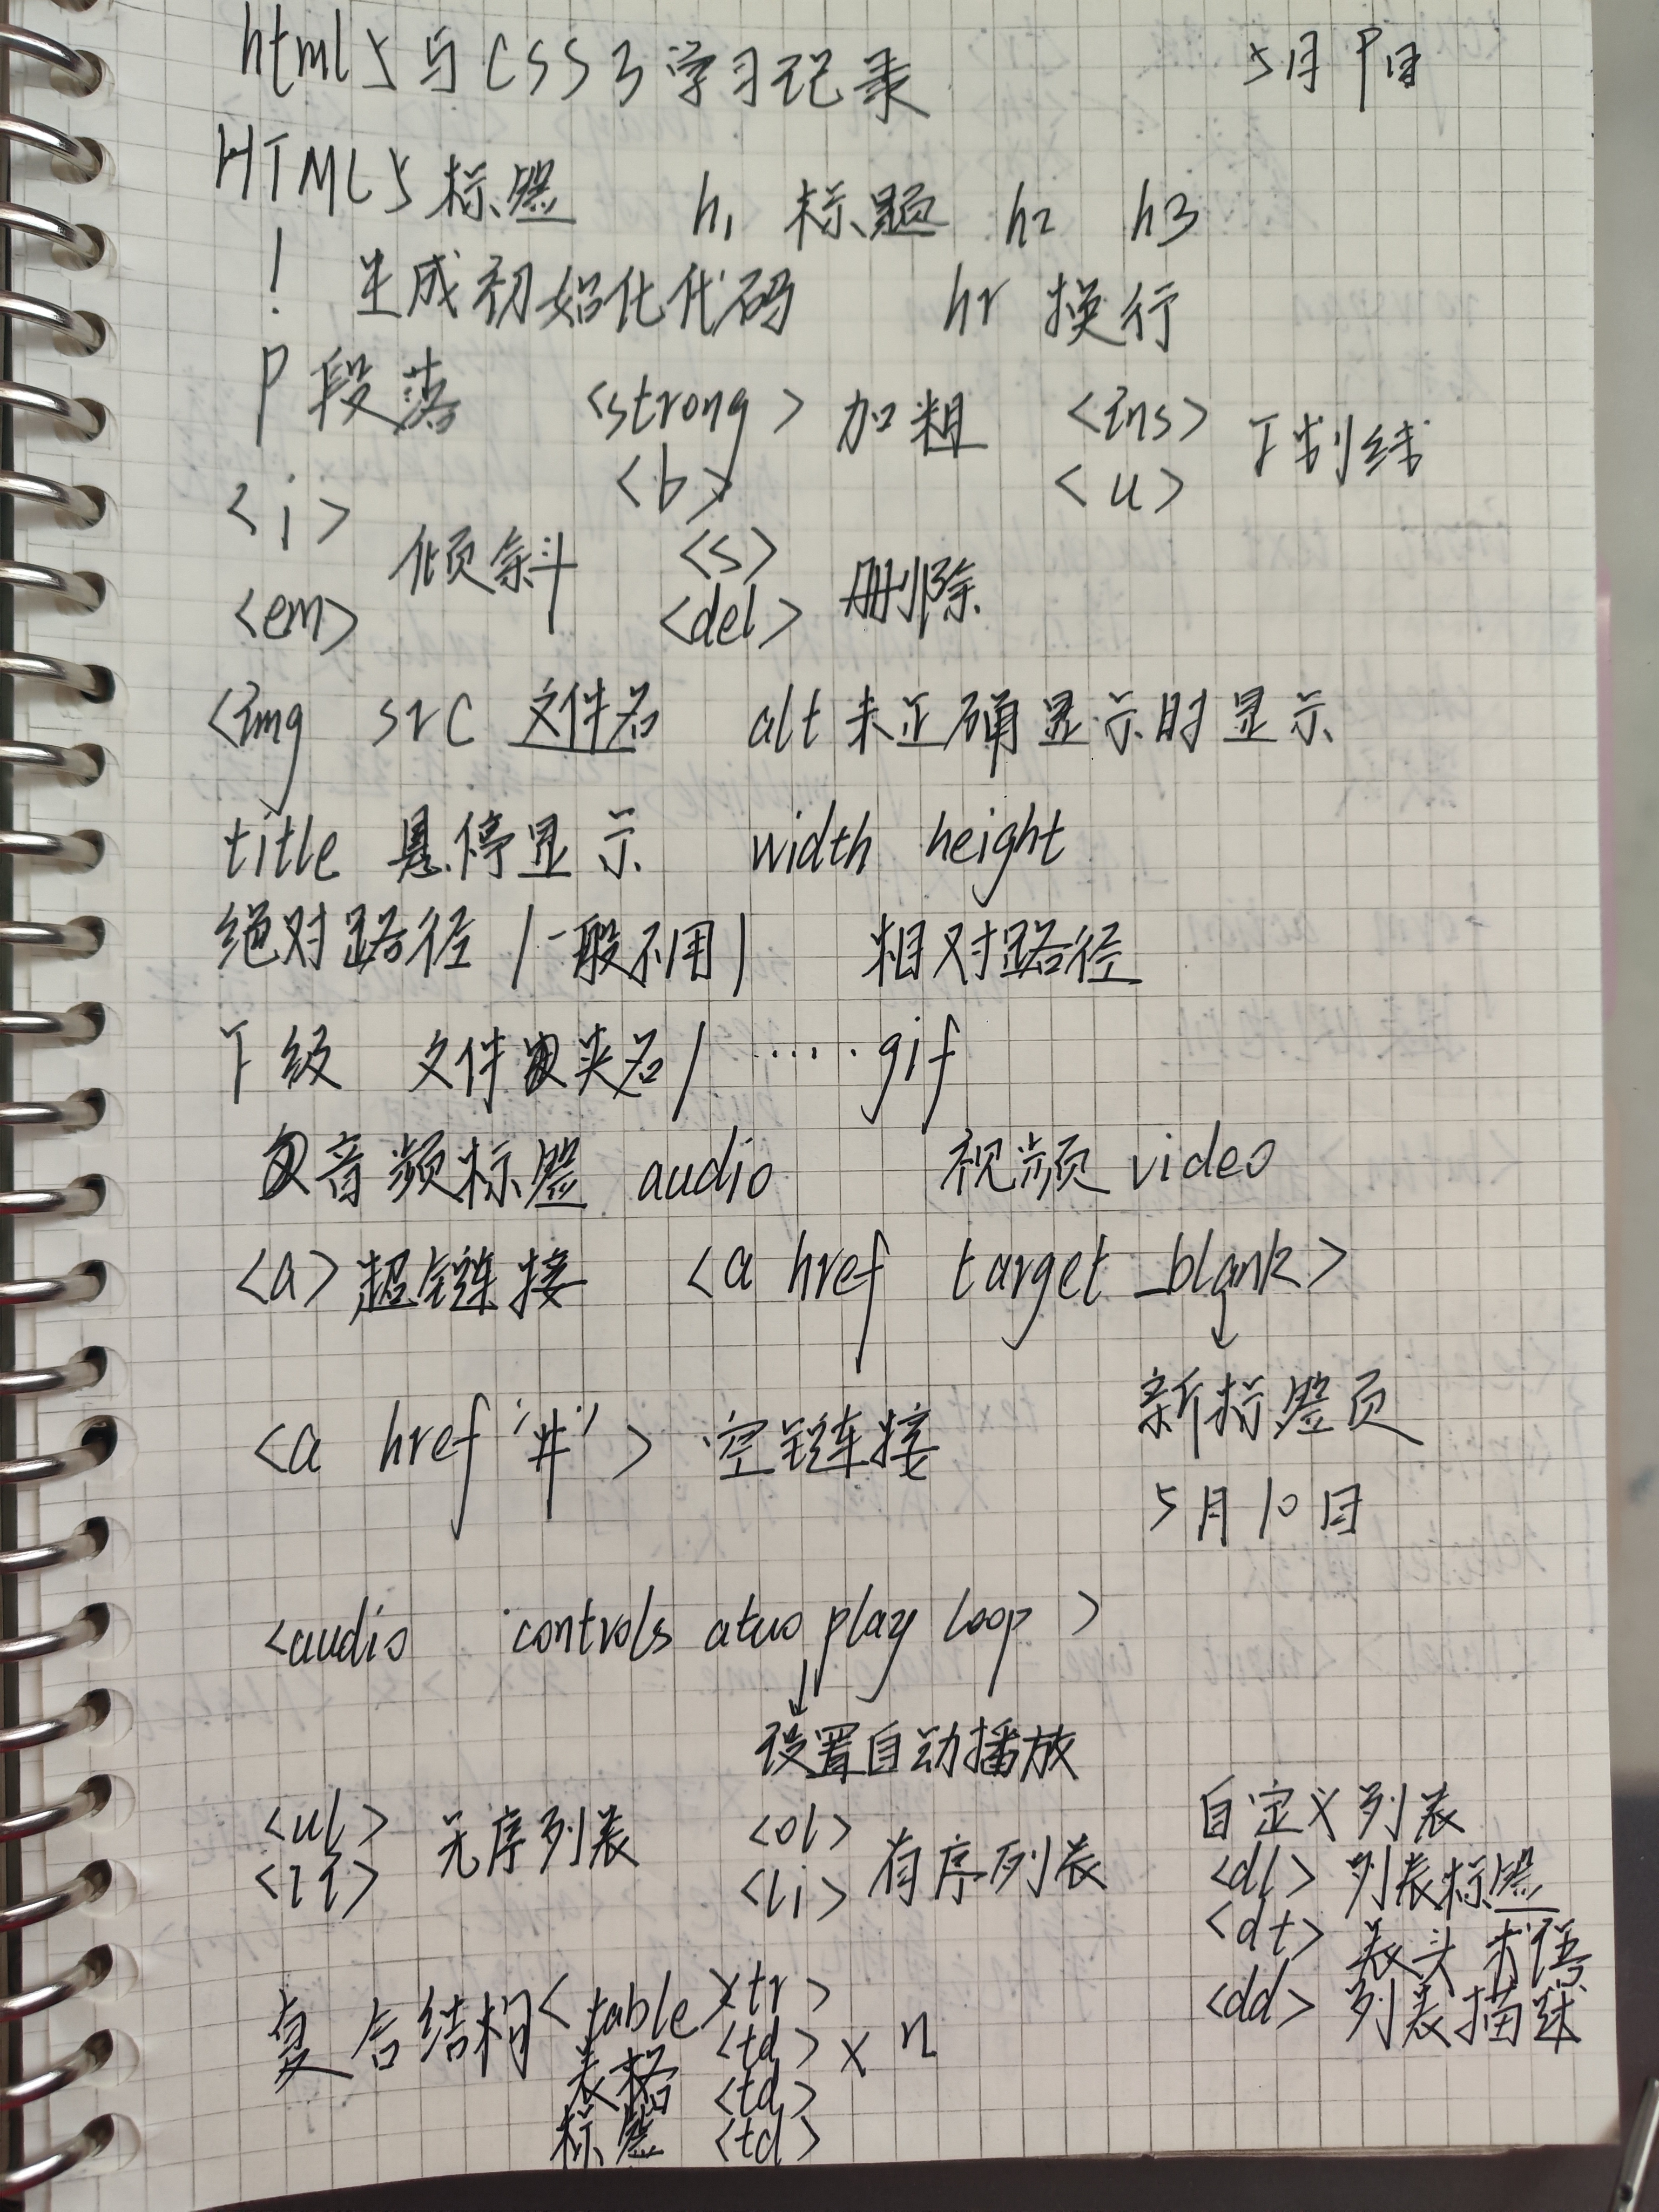 html5与CSS3学习记录 5月9日
HTML5标签 h1 标题 h2 h3
! 生成初始化代码 hr 换行
P 段落 <strong> 加粗 <ins> 下划线
<b> <u>
<i> 倾斜 <s> 删除
<em> <del>
<img src 文件名 alt 未正确显示时显示
title 悬停显示 width height
绝对路径 /一般不用/ 相对路径
下级 文件夹名/ ······gif
音频标签 audio 视频 video
<a>超链接 <a href target _blank>
新标签页
<a href '#'> 空链接
5月10日
<audio controls atuo play loop >
设置自动播放
<ul> 无序列表 <ol> 有序列表 自定义列表
<li> <li> <dl> 列表标签
<dt> 表头 术语
<dd> 列表描述
复合结构 <table><tr>
表格 <td> x n
标签 <td>
<td>